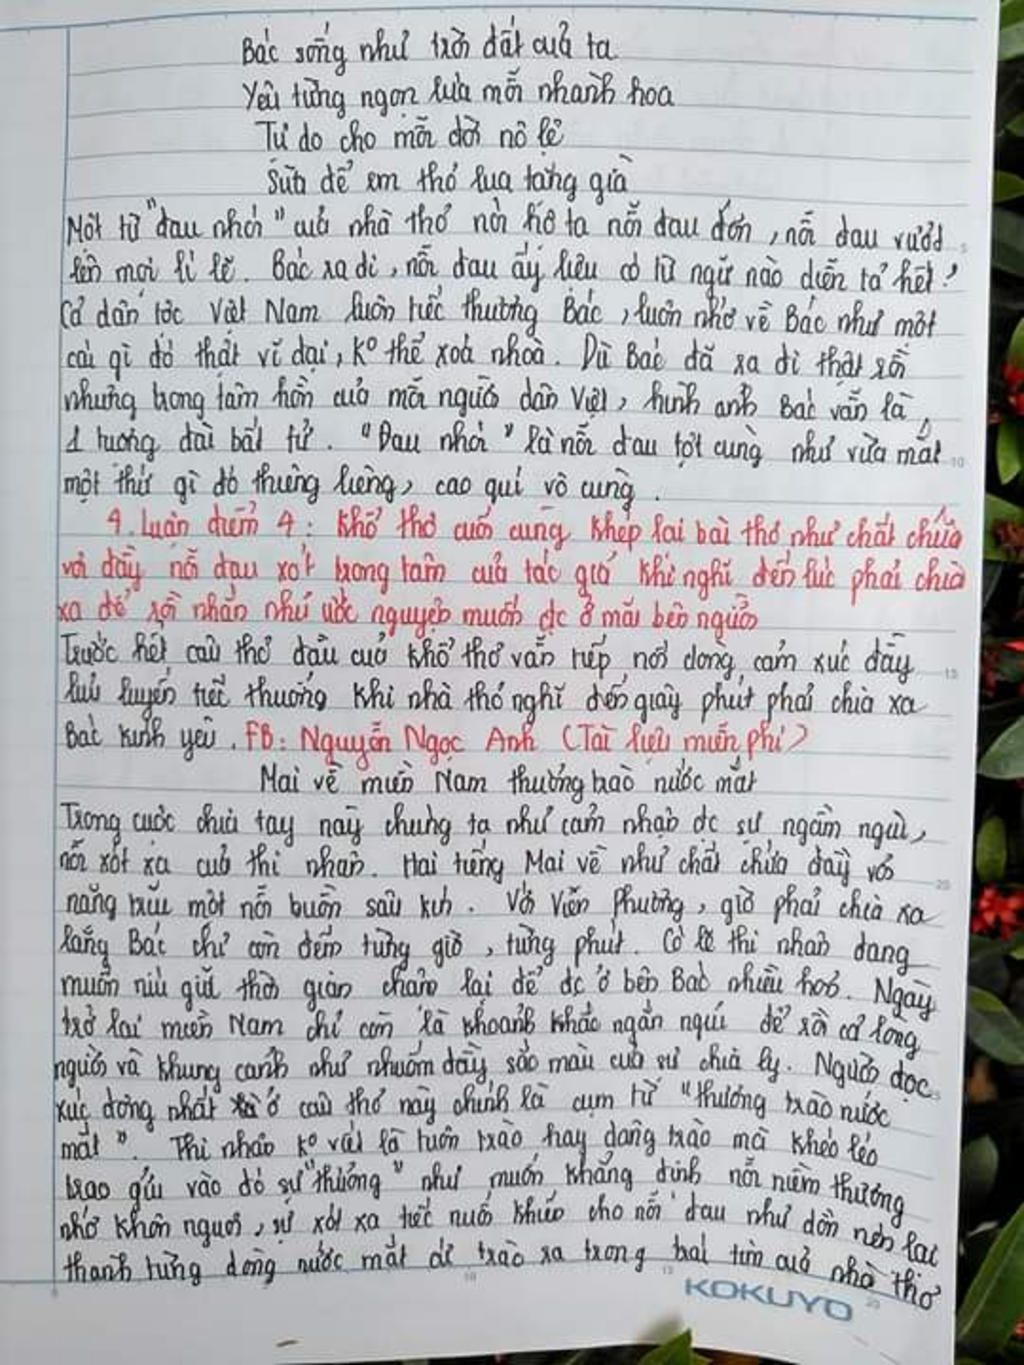 Bác sống như trời đất của ta
Yêu từng ngọn lúa mỗi nhành hoa
Tự do cho mỗi đời nô lệ
Sữa để em thơ lụa tặng già
Một từ "đau nhói" của nhà thơ nói hộ ta nỗi đau đớn, nỗi đau vượt
lên mọi lí lẽ. Bác ra đi, nỗi đau ấy liệu có từ ngữ nào diễn tả hết!
Cả dân tộc Việt Nam luôn tiếc thương Bác, luôn nhớ về Bác như một
cái gì đó thật vĩ đại, k° thể xoá nhoà. Dù Bác đã ra đi thật rồi
nhưng trong tâm hồn của mỗi người dân Việt, hình ảnh Bác vẫn là
1 tượng đài bất tử. "Đau nhói" là nỗi đau tột cùng như vừa mất
một thứ gì đó thiêng liêng, cao quí vô cùng.
4. Luận điểm 4: Khổ thơ cuối cùng khép lại bài thơ như chất chứa
với đầy nỗi đau xót trong tâm của tác giả khi nghĩ đến lúc phải chia
xa để rồi nhắn nhủ ước nguyện muốn đc ở mãi bên người
Trước hết câu thơ đầu của khổ thơ vẫn tiếp nối dòng cảm xúc đầy
lưu luyến tiếc thương khi nhà thơ nghĩ đến giây phút phải chia xa
Bác kính yêu. FB: Nguyễn Ngọc Anh (Tài liệu miễn phí)
Mai về miền Nam thương trào nước mắt
Trong cuộc chia tay này chúng ta như cảm nhận đc sự ngậm ngùi,
nỗi xót xa của thi nhân. Hai tiếng Mai về như chất chứa đầy vơi
nặng trĩu một nỗi buồn sâu kín. Với Viễn Phương, giờ phải chia xa
lăng Bác chỉ còn đếm từng giờ, từng phút. Có lẽ thi nhân đang
muốn níu giữ thời gian chậm lại để đc ở bên Bác nhiều hơn. Ngày
trở lại miền Nam chỉ còn là khoảnh khắc ngắn ngủi để rồi cả lòng
người và khung cảnh như nhuốm đầy sắc màu của sự chia ly. Người đọc
xúc động nhất ở câu thơ này chính là cụm từ "thương trào nước
mắt". Thi nhân k° viết là tuôn trào hay dâng trào mà khéo léo
trao gửi vào đó sự "thương" như muốn khẳng định nỗi niềm thương
nhớ khôn nguôi, sự xót xa tiếc nuối khiến cho nỗi đau như dồn nén lại
thành từng dòng nước mắt cứ trào ra trong trái tim của nhà thơ
KOKUYO